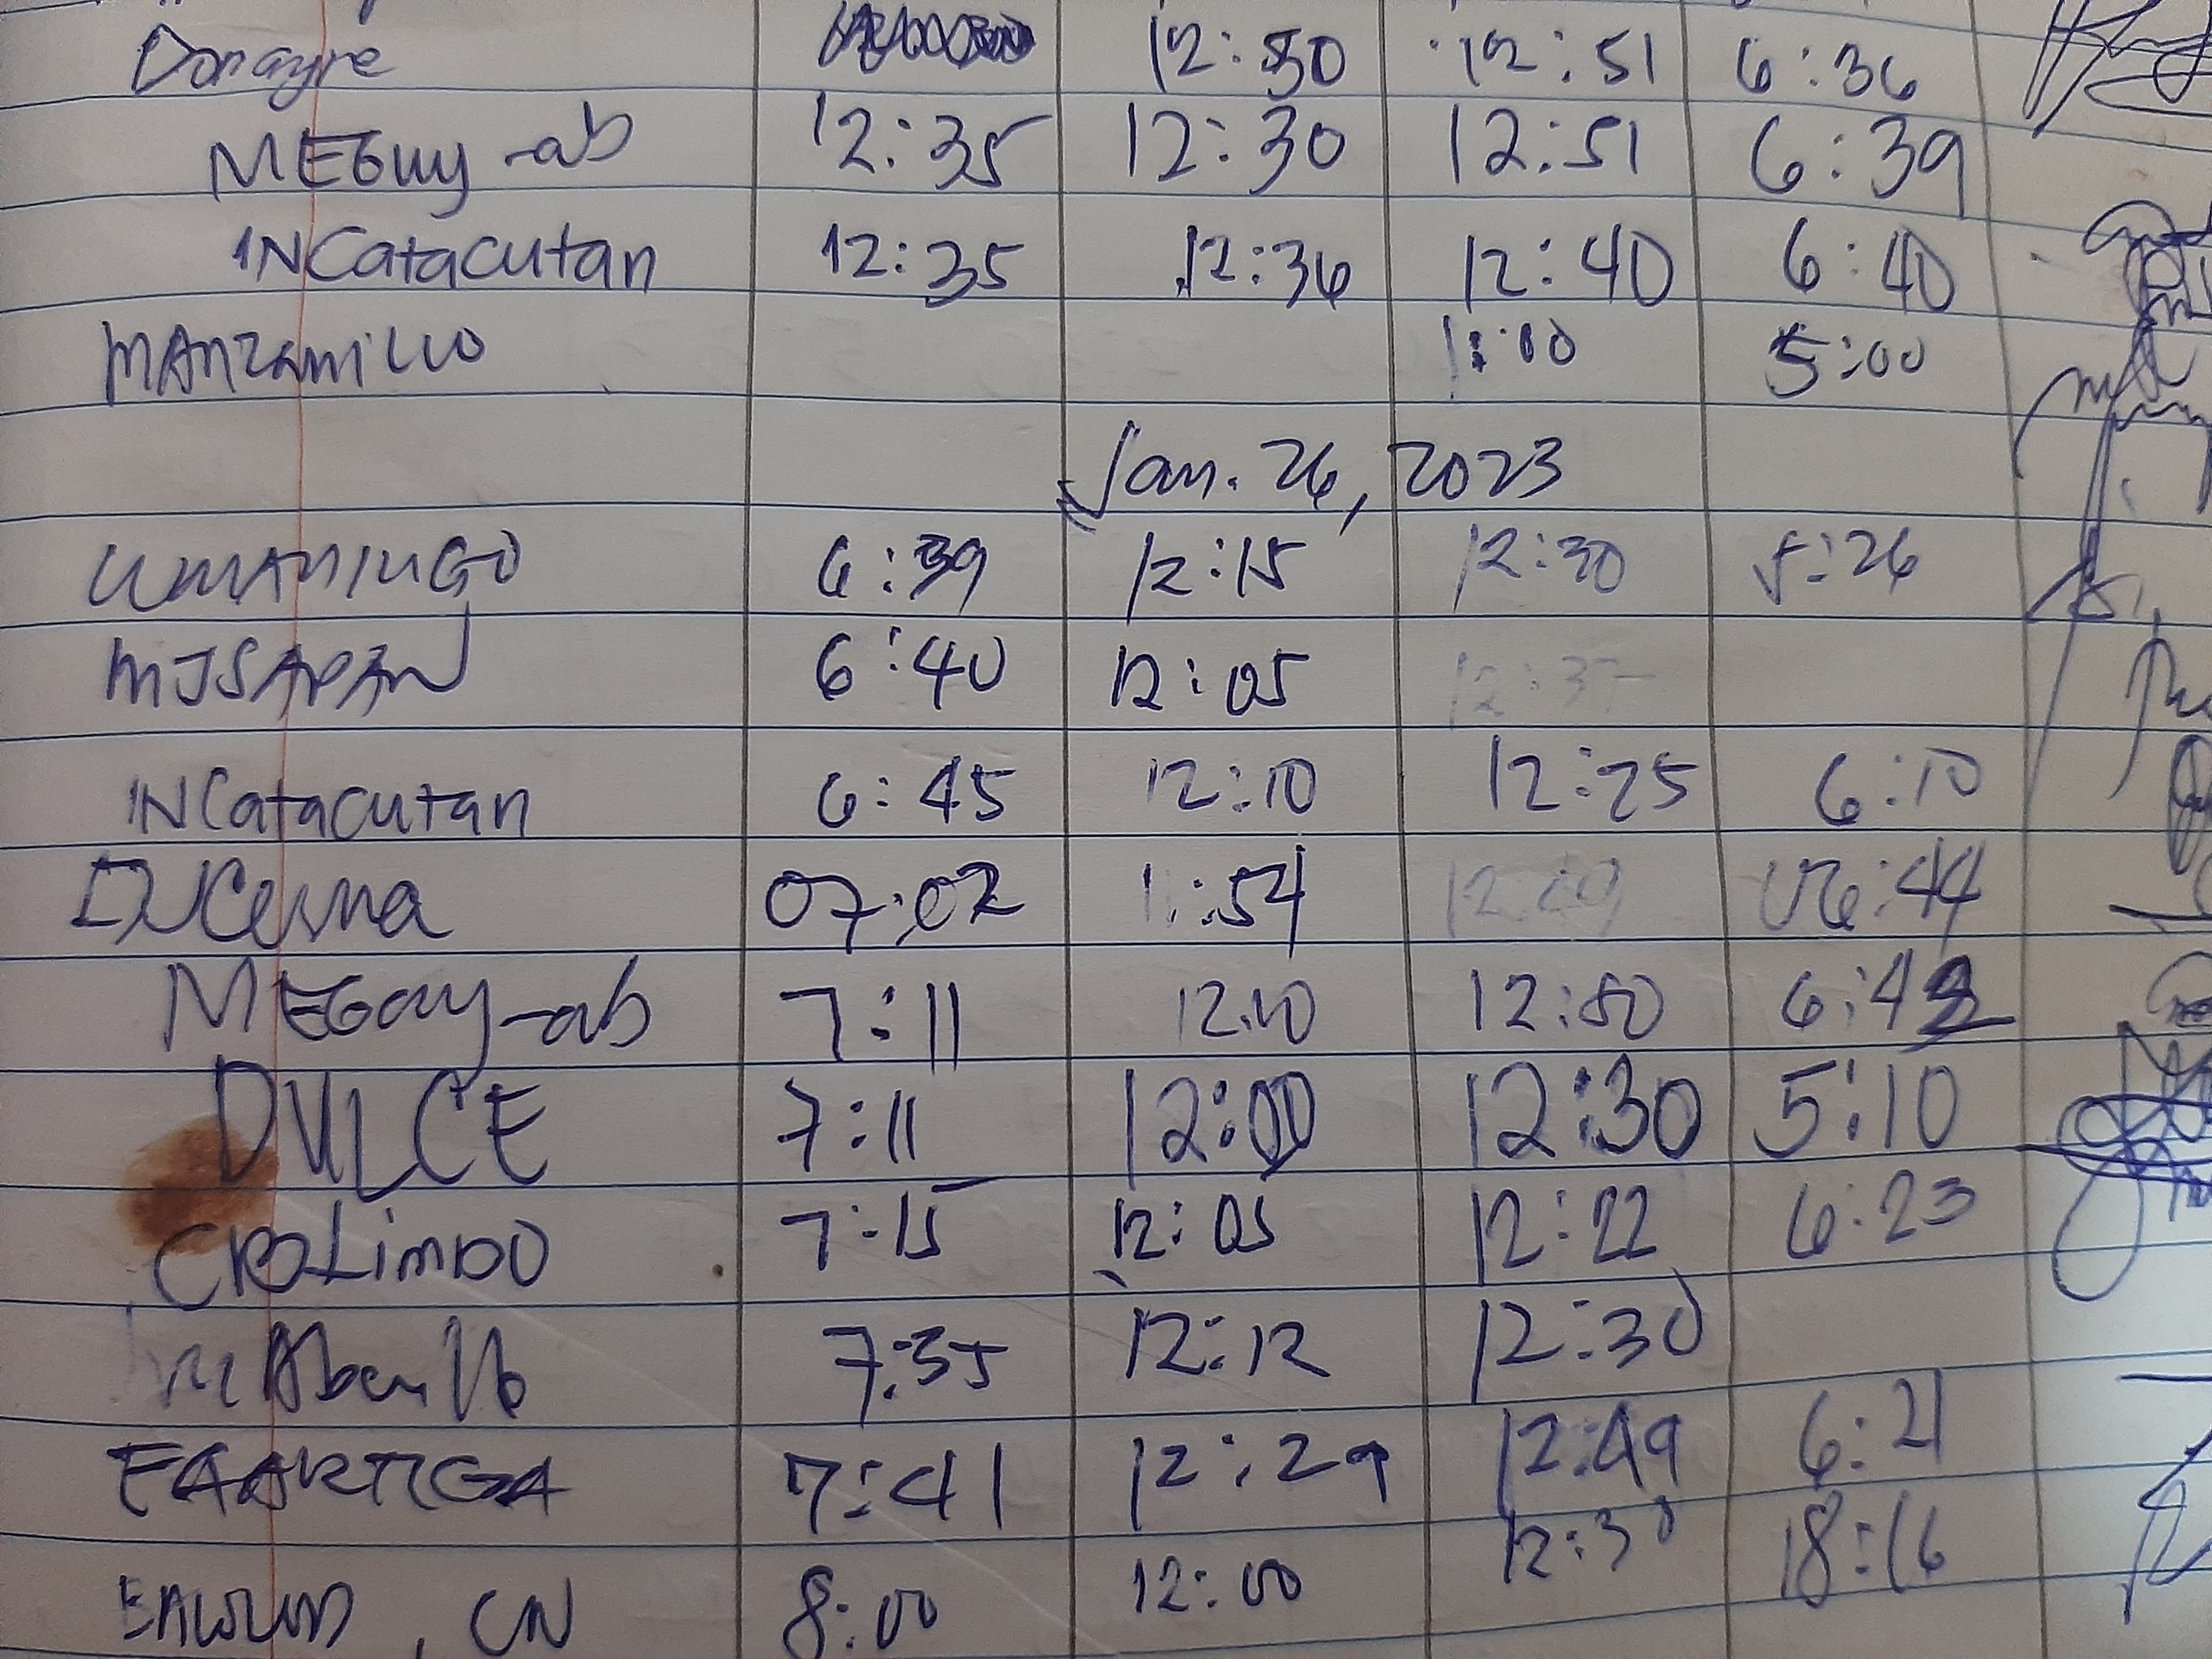 Donayre 12:30 12:51 6:36
MEGuy-ab 12:35 12:30 12:51 6:39
INCatacutan 12:35 12:36 12:40 6:40
MANZANILLO 1:00 5:00
Jan. 26, 2023
UMANINGO 6:39 12:15 12:30 5:26
MJSAPAN 6:40 12:05 12:37
INCatacutan 6:45 12:10 12:25 6:10
07:02 11:54 12:49 06:44
MEGuy-ab 7:11 12:10 12:50 6:42
DULCE 7:11 12:00 12:30 5:10
CROLimDO 7:15 12:05 12:22 6:23
7:35 12:12 12:30
EAARTIGA 7:41 12:29 12:49 6:21
, CN 8:00 12:00 12:30 18:16